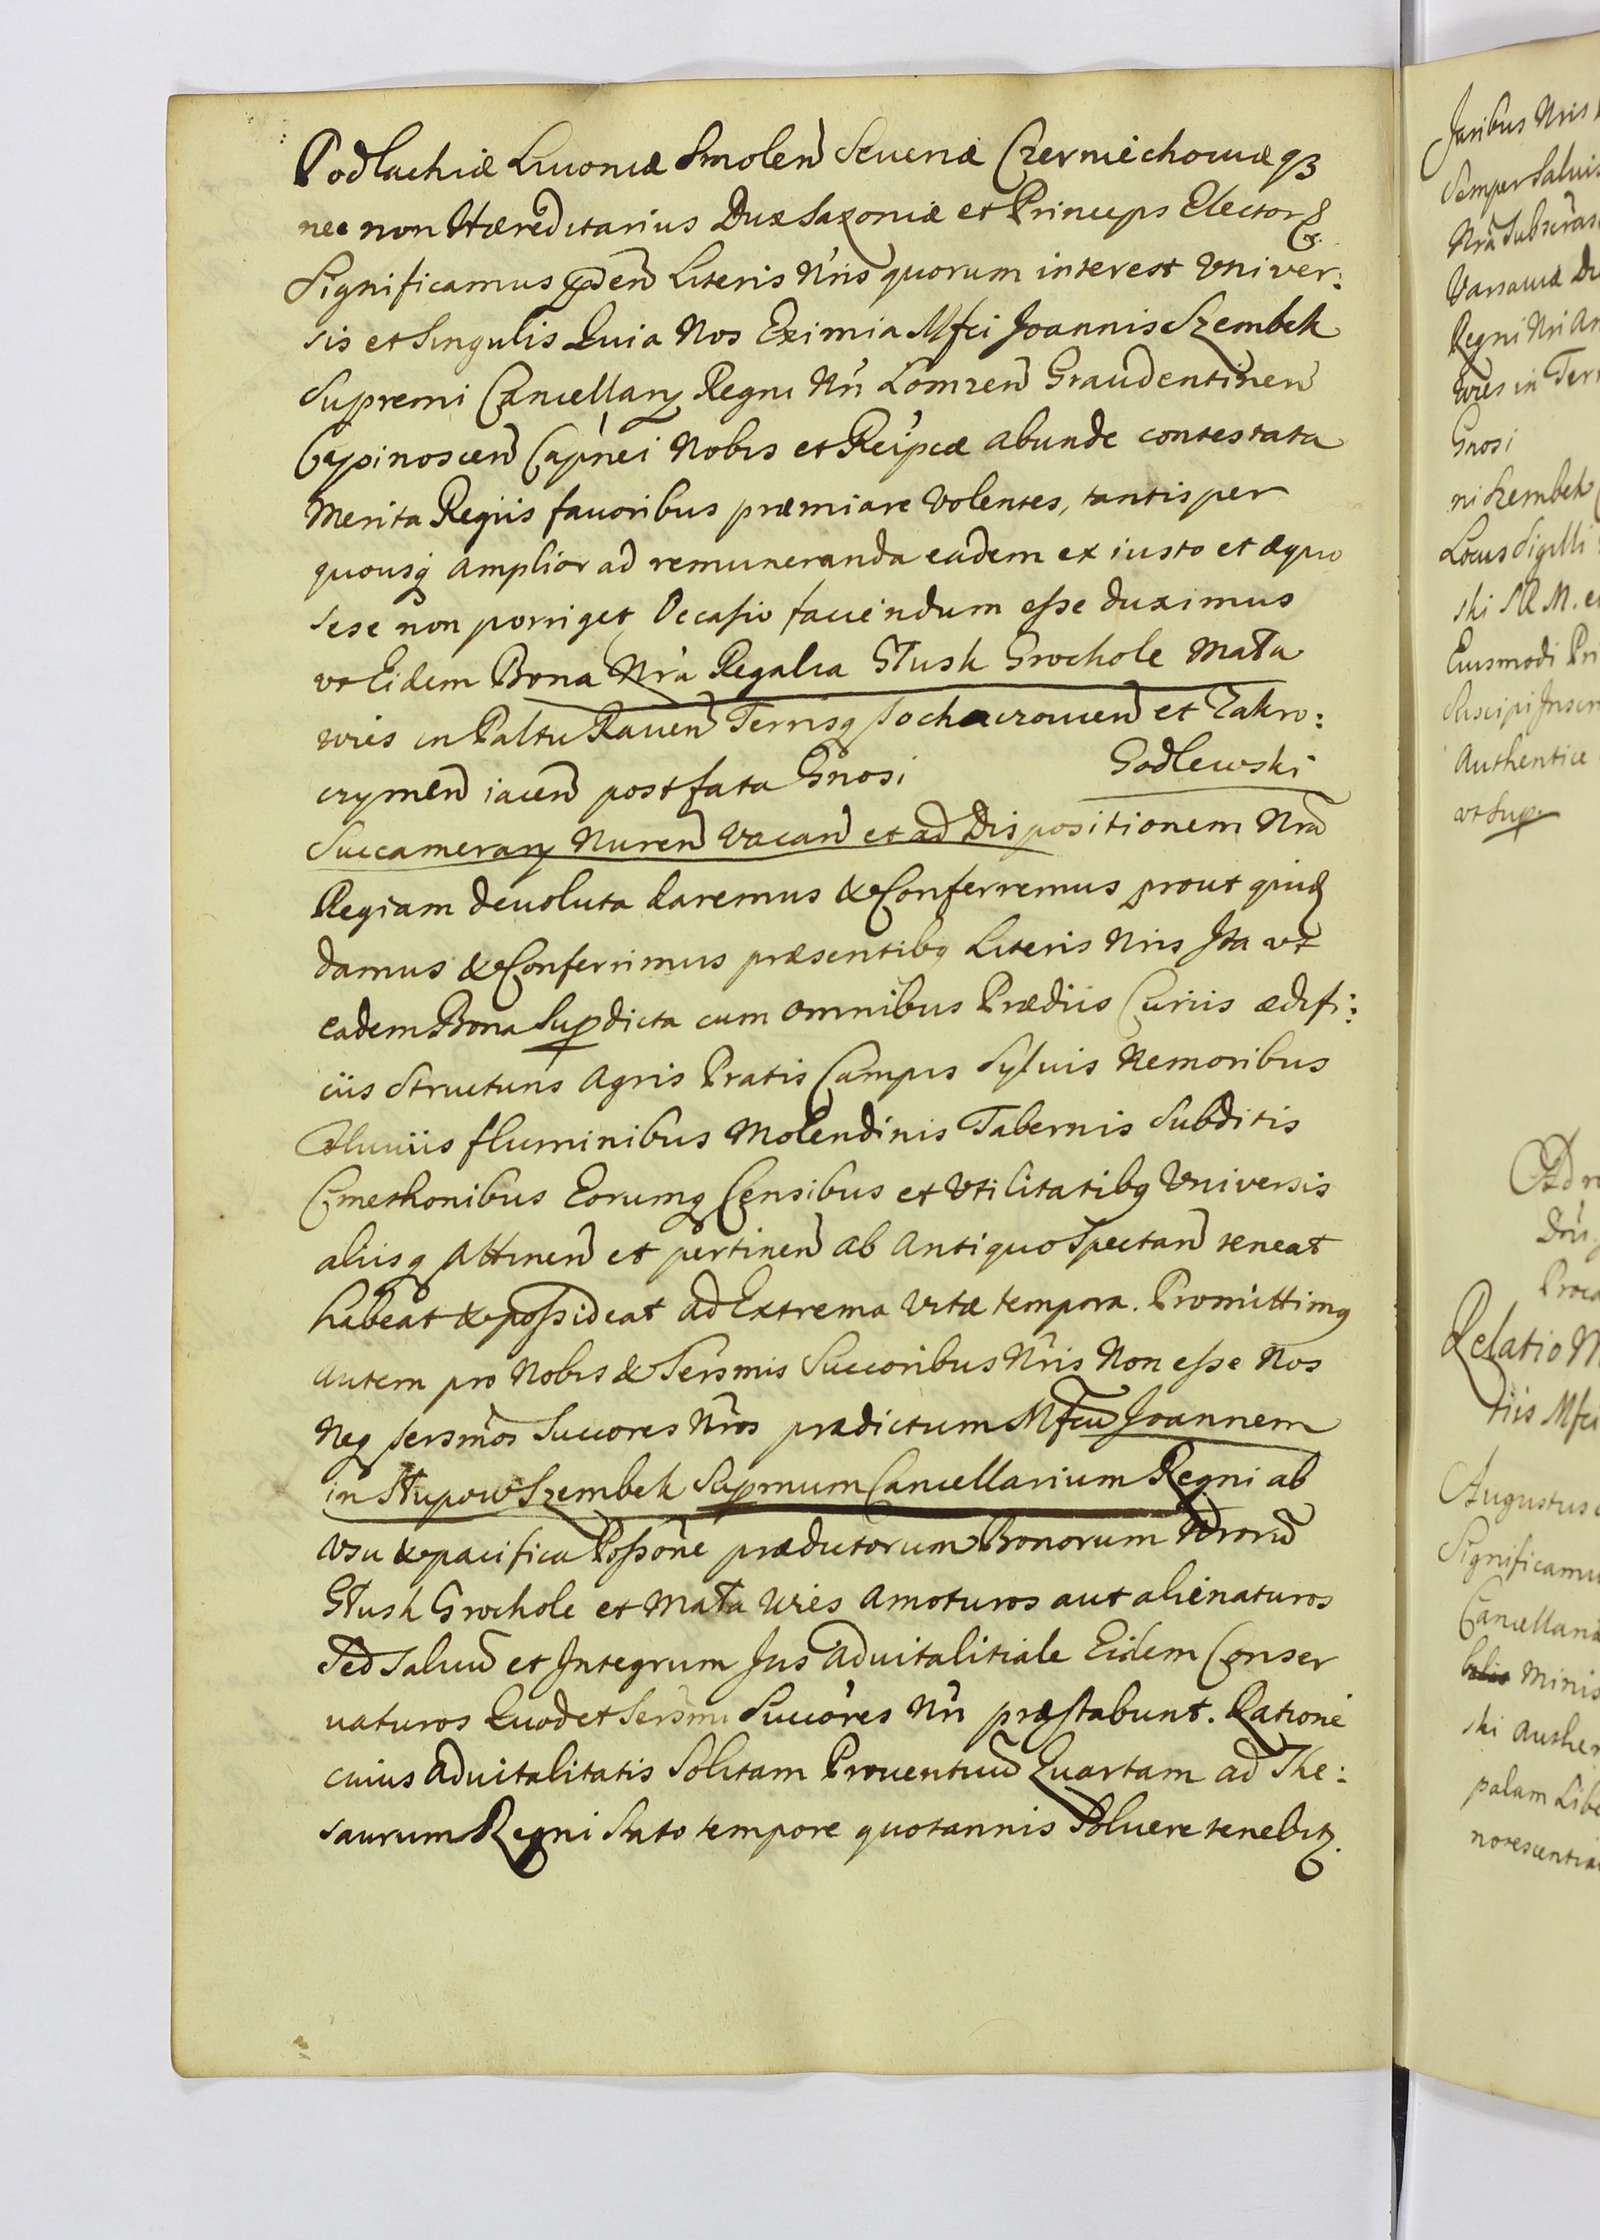 Podlachiæ Livoniæ Smolen Severiæ Czerniechoviæ qȝ
nec non Hæreditarius Dux Saxoniæ et Princeps Elector &
Significamus pñden Literis Nris quorum interest Univer:
sis et Singulis Quia Nos Eximia Mfci Joannis Szembek
Supremi Cancellarij Regni Nri Lomzen Graudentinen
Capnei Nobis et Reipcæ abunde contestata
Merita Regiis favoribus præmiare volentes, tantisper
quousq amplior ad remuneranda eadem ex iusto et æquo
sese non porriget Occasio faciendum esse duximus
vt Eidem Bona Nra Regalia Głusk Grochole Mała
wies in Paltu Raven Terrisq Sochaczowien et Zakro:
czymen iacen post fata Gnosi Godlewski
Succamerarij Nuren vacan et ad Dispositionem Nram
Regiam devoluta daremus & Conferremus prout quid
damus & Conferrimus præsentibq Literis Nris Ita vt
eadem Bona Supdicta cum omnibus Prædiis Curiis ædifi:
ciis Structuris Agris Pratis Campis Sylvis Nemoribus
Fluviis fluminibus Molendinis Tabernis Subditis
Cmethonibus Eorumq Censibus et Vtilitatibq Vniversis
aliisq Attinen et pertinen ab Antiquo Spectan teneat
habeat & possideat ad Extrema vitæ tempora. Promittimq
autem pro Nobis & Sersmis Succoribus Nris Non esse Nos
Neq sersmos Succores Nros prædictum Mfcum Joannem
in Słupow Szembek Supmum Cancellarium Regni ab
vsu & pacifica Possone prædictorum Bonorum Nrorum
Głusk Grochole et Mała Wies amoturos aut alienaturos
Sed salvum et Integrum Jus advitalitiale Eidem Conser
vaturos Quod et Sersmi Succores Nri præstabunt. Ratione
cuius advitalitatis Solitam Proventuum Quartam ad The:
saurum Regni Suto tempore quotannis Solvere tenebitȝ.
Juribus Nris
Semper Salvis
Nra Subscras
Varsaviæ Di
Regni Nri An
wies in Terr
Gnosi
ni Szembek
Locus Sigilli
ski SRM. e
Eiusmodi Pri
Suscipi Inscr
Authentice
vt Sup
Relatio M
tiis Mfci
Augustus
Significamu
Cancellaria
Minis
ski Authen
palam Lib